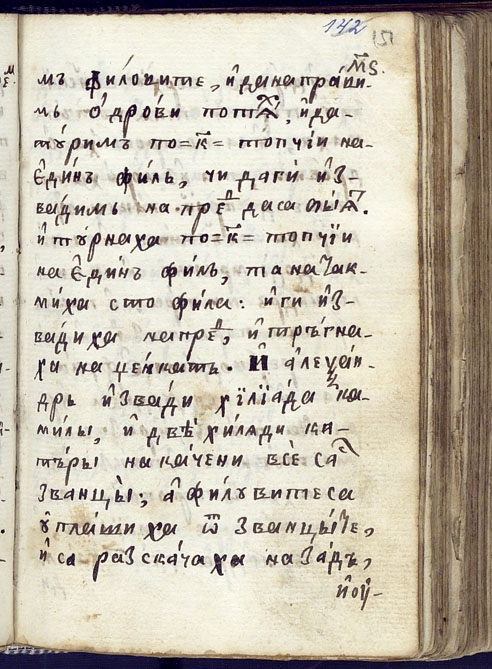 142
151
т҃ѕ.
мъ филовите, и҆ да напра́ви-
мь ѻ҆ дрови потѧ҄ⷯ, и҆ да-
ту́римъ по=к҃= топчі́и на-
є҆ди́нъ фи́ль, чи да ги и҆з-
ва́димь на преⷣ да са ѡ҆ѧⷮ.
и҆ ту́рнаха по=к҃= топчі́и
на є҆ди́нъ фи́лъ, та нача́к-
ми́ха сто фи́ла: и҆ ги и҆з-
ва́диха на преⷣ, и҆ тръ́гна-
ха на це́нкать. И҆ а҆леѯа́н-
дрь и҆звади хїлїа́да ка-
ми́лы, и҆ двѣ хи́ляди ка-
тъ́ры на ка́чени все́ са
званцы̀; а҆ фи́лувите са
у҆пла́шиха ѿ званцы́те,
и҆ са разска́чаха на за́дъ,
и҆ оу҆-